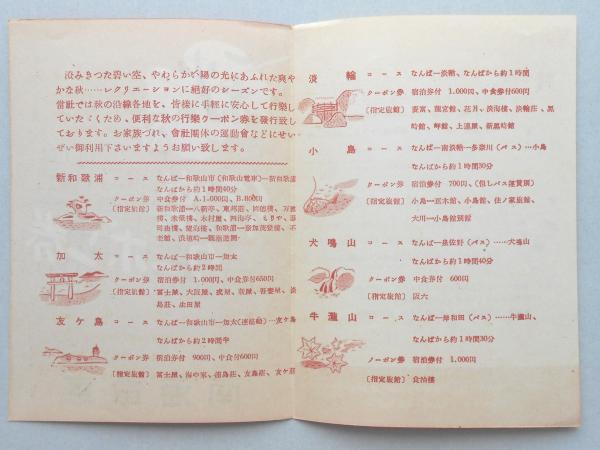 澄みきつた碧い空、やわらかい陽の光にあふれた爽や
かな秋……レクリエーションに絶好のシーズンです。
當社では秋の沿線各地を、皆樣に手輕に安心して行樂し
ていたゞくため、便利な秋の行樂クーポン券を發行致し
ております。お家族づれ、會社團体の運動會などにせい
ぜい御利用下さいますようお願い致します。
新和歌浦 コース なんば—和歌山市(和歌山電車)—新和歌浦
なんばから約1時間40分
クーポン券 中食券付 A.1.000円、B.800円
〔指定旅館〕 新和歌浦—八新亭、東邦莊、岡徳樓、万波
樓、米榮樓、木村屋、四海亭、
老館、
加太 コース なんば—和歌山市—加太
なんばから約2時間
クーポン券 宿泊券付 1.000円、中食券付650円
〔指定旅館〕 冨士屋、大阪屋、
島莊、
友ケ島 コース なんば—和歌山市—加太(連絡船)…友ケ島
なんばから約2時間半
クーポン券 宿泊券付 900円、中食券付600円
〔指定旅館〕 冨士屋、海や家、淡島莊、友島莊、友ケ莊
淡輪 コース なんば—淡輪、なんばから約1時間
クーポン券 宿泊券付 1.000円、中食券付600円
〔指定旅館〕 龍宮館、花月、淡海樓、淡輪莊、黒
時館、岬館、上運屋、新黒時館
小島 コース なんば—南淡輪—多奈川(バス)…小島
なんばから約1時間30分
クーポン券 宿泊券付 700円、(但しバス運賃別)
〔指定旅館〕 小島—五木館、小島館、住ノ家旅館、
大川—小島館別館
犬鳴山 コース なんば—泉佐野(バス)……犬鳴山
なんばから約1時間40分
クーポン券 中食券付 600円
〔指定旅館〕 阪六
牛瀧山 コース なんば—岸和田(バス)……牛瀧山、
なんばから約1時間30分
クーポン券 宿泊券付 1.000円
〔指定旅館〕 食治樓